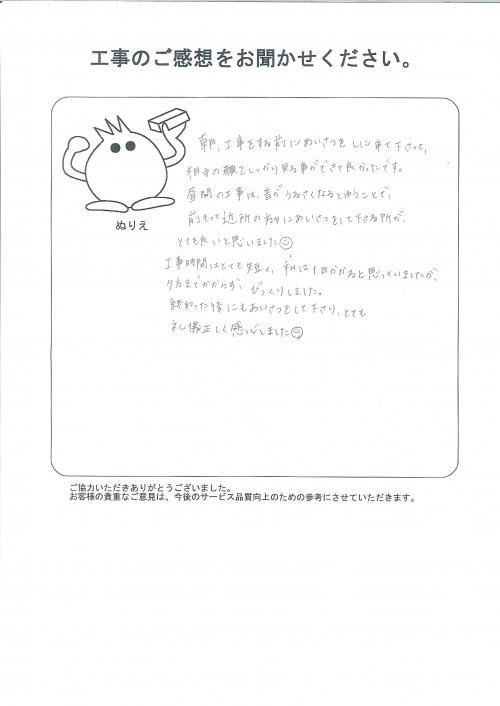 工事のご感想をお聞かせください。
朝、工事をする前にあいさつをしに来て下さって、
相手の顔をしっかり見る事ができて良かったです。
昼間の工事は、音がうるさくなるとゆうことで、
前もって近所の方々にあいさつをして下さる所が、
とても良いと思いました
ぬりえ
工事時間はとても短く、私は1日かかると思っていましたが、
夕方までかからず、びっくりしました。
終わった後にもあいさつをして下さり、とても
礼儀正しく感心しました
ご協力いただきありがとうございました。
お客様の貴重なご意見は、今後のサービス品質向上のための参考にさせていただきます。